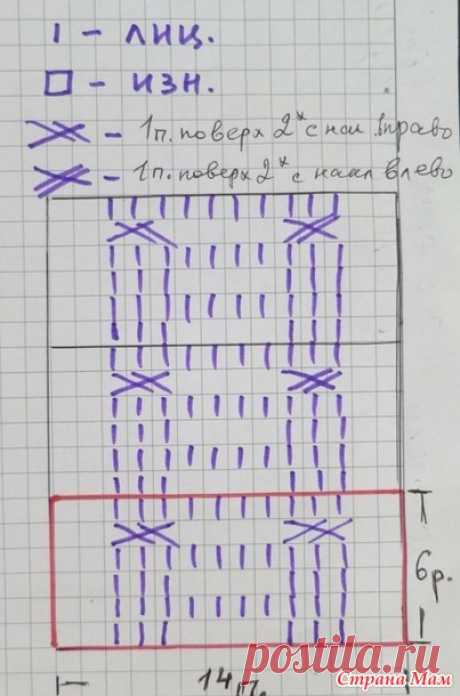 I - ЛИЦ.
□ - ИЗН.
- 1п. поверх 2* с нак вправо
- 1п. поверх 2* с накл влево
6р.
14п.
postila.ru
Страна Мам